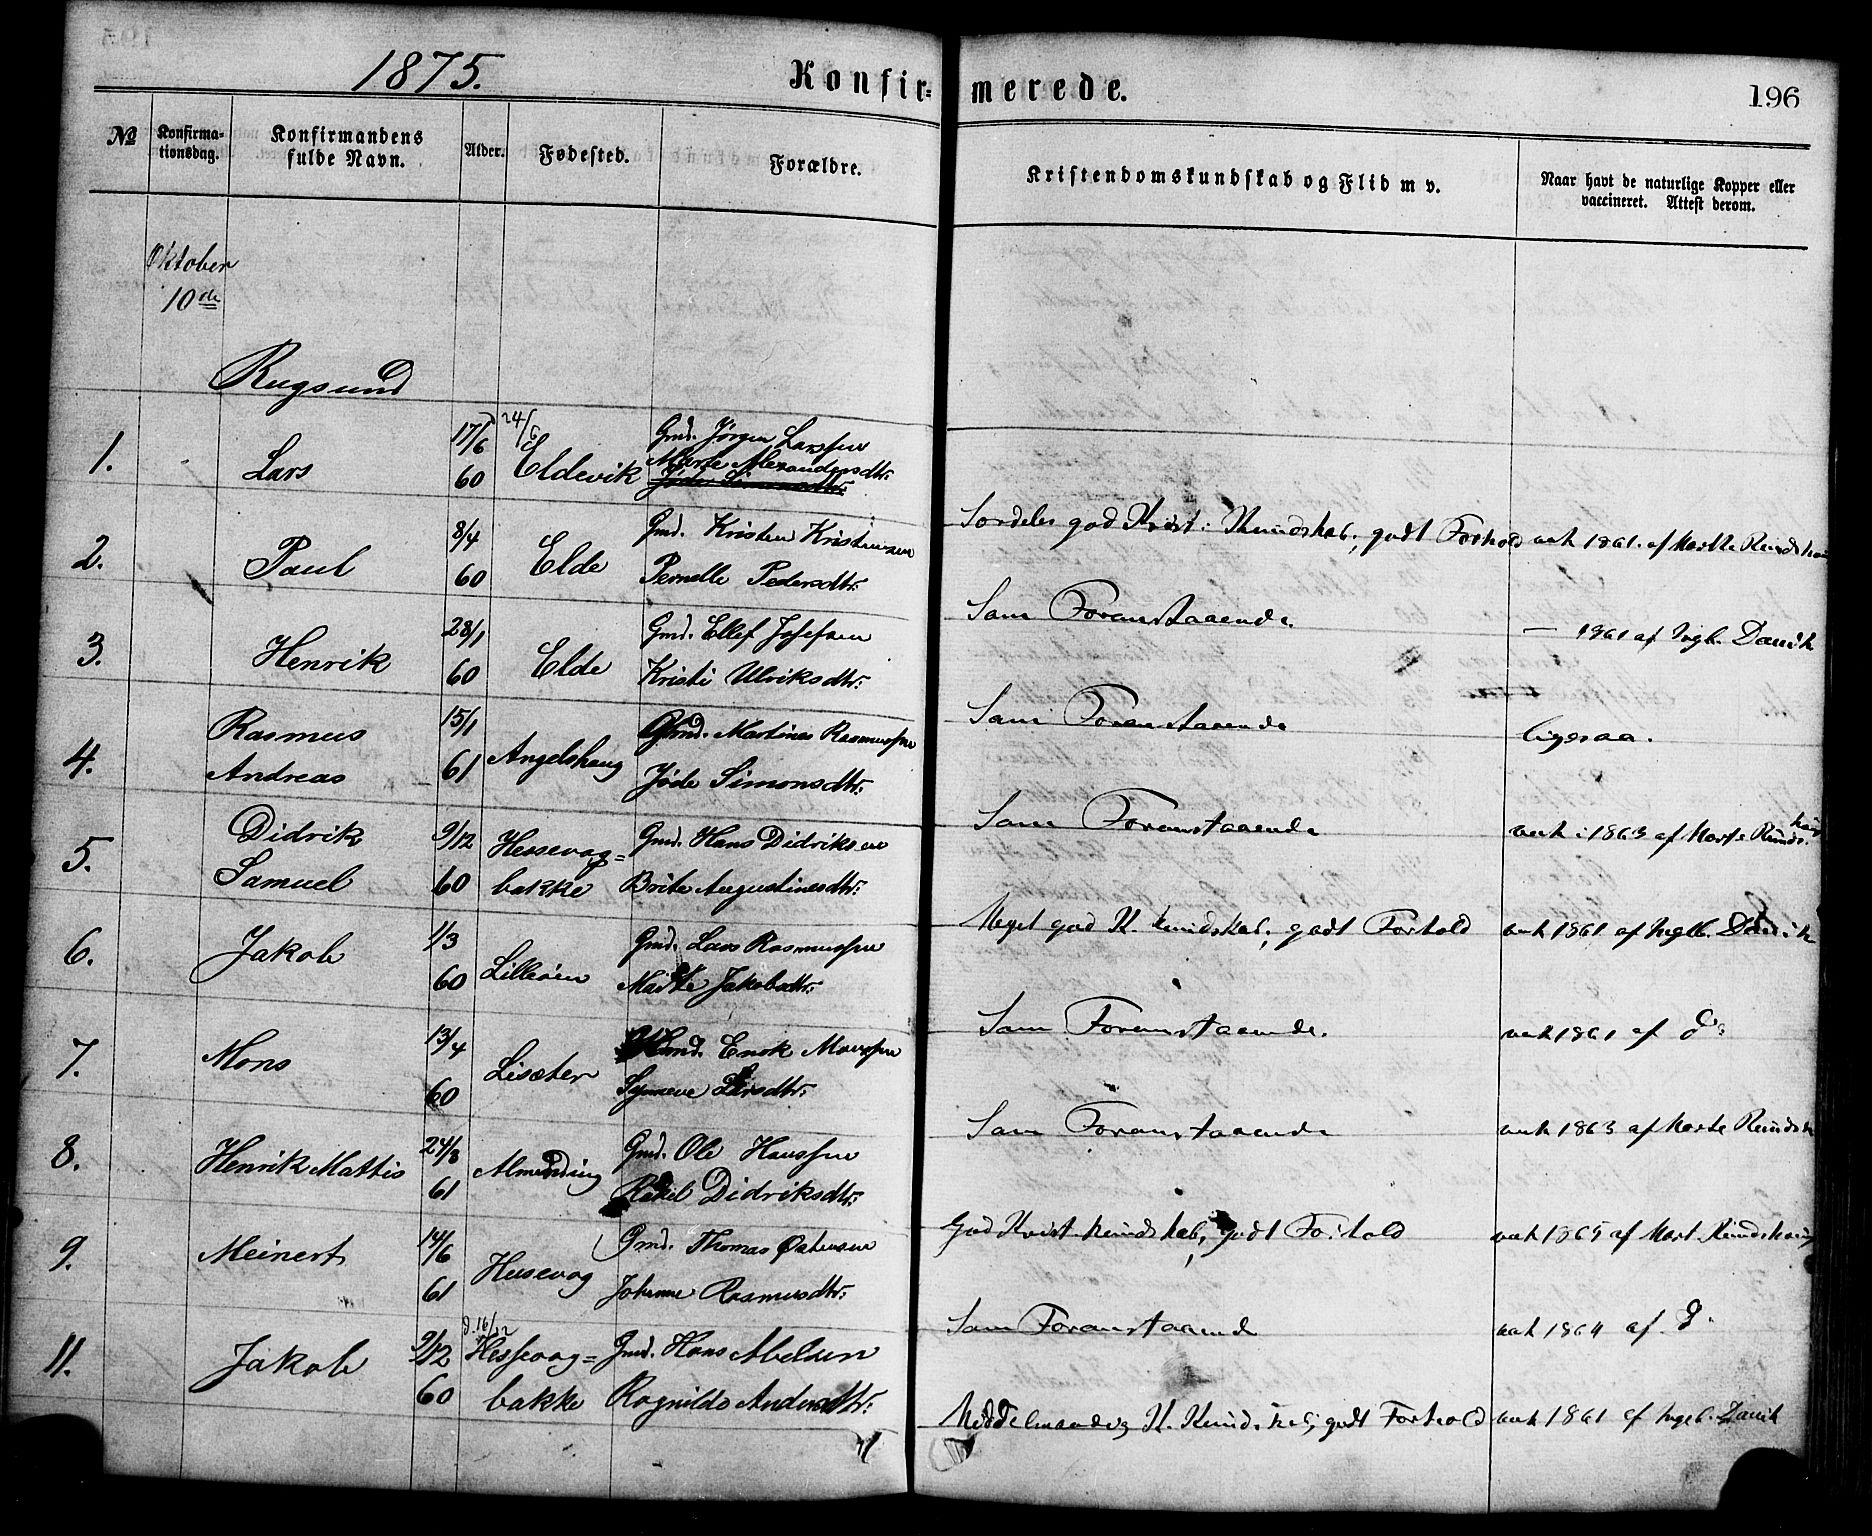 1875. Konfir= merede. 196
№ Konfirma-tionsdag. Konfirmandens fulde Navn. Alder. Fødested. Forældre. Kristendomskundskab og Flid m v. Naar havt de naturlige Kopper eller vaccineret. Attest derom.
Oktober
10de
Rugsund
1. Lars 17/6 60 24/6 Eldevik Gmd. Jørgen Larssen
Marte Alexandersdtr.
Særdeles god Krist. Kundskab, godt Forhold vak 1861. af Marte
2. Paul 8/4 60 Elde Gmd. Kristen Kristensen
Pernelle Pedersdtr.
Som Foranstaaende. — 1861 af Ingb. Davik
3. Henrik 28/1 60 Elde Gmd. Ellef Josefsen
Kristi Ulriksdtr.
Som Foranstaaende ligesaa.
4. Rasmus Andreas 15/1 61 Angelshaug Gmd. Martines Rasmussen
Jøde Simonsdtr.
Som Foranstaaende vak i 1863 af Marte
5. Didrik Samuel 9/12 60 Hessevog=bakke Gmd. Hans Didriksen
Brite Augustinesdtr.
Meget god K. Kundskab, godt Forhold vak 1861 af Ingb. Davik
6. Jakob 1/3 60 Lilleøen Gmd. Lars Rasmussen
Marte Jakobsdtr.
Som Foranstaaende. vak 1861 af do
7. Mons 13/4 60 Lisæter Gmd. Enok Monssen
Synneve Larsdtr.
Som Foranstaaende vak 1863 af Marte
8. Henrik Mattis 24/3 61 Almending Gmd. Ole Hanssen
Rakel Didriksdtr.
God Krist. kundskab, godt Forhold vak 1865 af Mart.
9. Meinert 14/6 61 Husevog Gmd. Thomas Østensen
Johanne Rasmusdtr.
Som Foranstaaende vak 1864 af do
11. Jakob 9/12 60 d. 16/12 Hessevog=bakke Gmd. Hans Abelsen
Ragnilde Andersdtr.
Middelmaadig K. Kundskab, godt Forhold vak 1861 af Ingeb. Davik